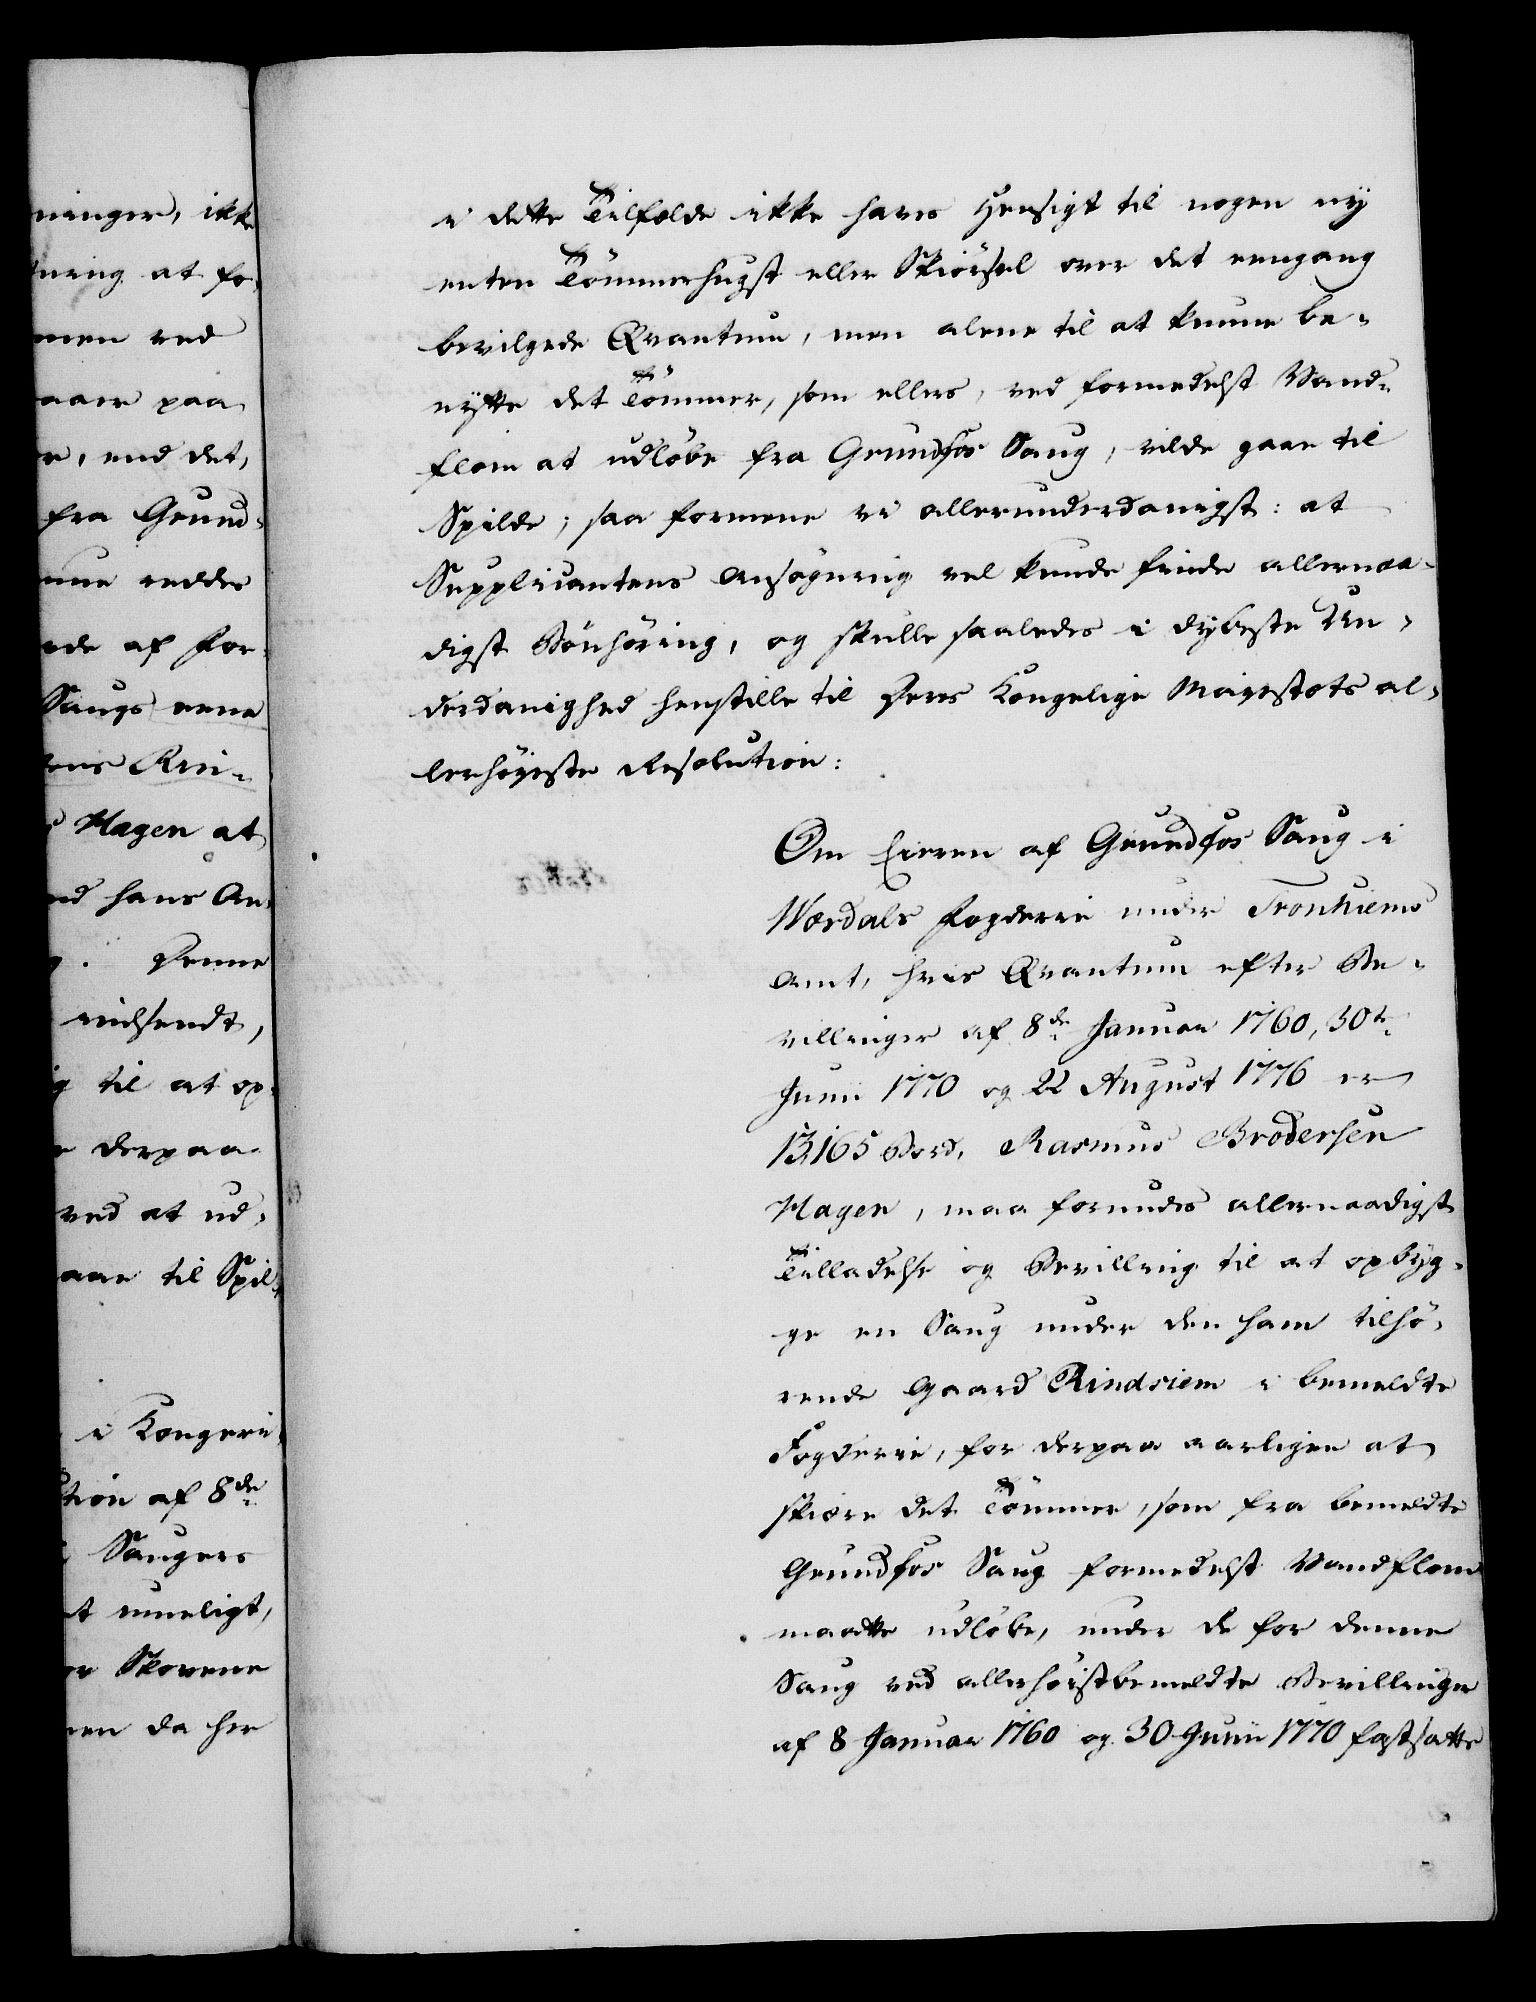 ninger, ikke
tning at for,
men ved
aaer paa
r, end det,
fra Grund,
nne reddes
ede af For,
Saugs eene
tens Rin-
s Hagen at
ed hans An,
g. Denne
indsendt,
g til at op,
e derpaa
ved at ud,
aae til Spil,
i Kongeri,
tion af 8de
Saugers
et umueligt,
or Skovene
men da her
i dette Tilfælde ikke haves Hensigt til nogen ny
enten Tömmerhugst eller Skiörsel over det eengang
bevilgede Qvantum, men alene til at kunne be,
nytte det Tömmer, som ellers, ved formedelst Vand,
flom at udlöbe fra Grundfos Saug, vilde gaae til
Spilde; saa formene vi allerunderdanigst: at
Supplicantens Ansögning vel kunde finde allernaa-
digst Bönhöring, og skulle saaledes i dybeste Un,
derdanighed henstille til Deres Kongelige Majestæts al,
lerhöjeste Resolution:
Om Eieren af Grundfos Saug i
Werdals Fogderie under Tronhiems
Amt, hvis Qvantum efter Be,
villinger af 8de Januar 1760, 30te
Junii 1770 og 22 August 1776 er
13,165 Bord, Rasmus Brodersen
Hagen, maa forundes allernaadigst
Tilladelse og Bevilling til at opbyg,
ge en Saug under den ham tilhö,
rende Gaard Rindsiem i bemeldte
Fogderie, for derpaa aarligen at
skiære det Tömmer, som fra bemeldte
Grundfos Saug formedelst Vandflom
maatte udlöbe, under de for denne
Saug ved allerhöistbemeldte Bevillinger
af 8 Januar 1760 og 30 Junii 1770 fastsatte